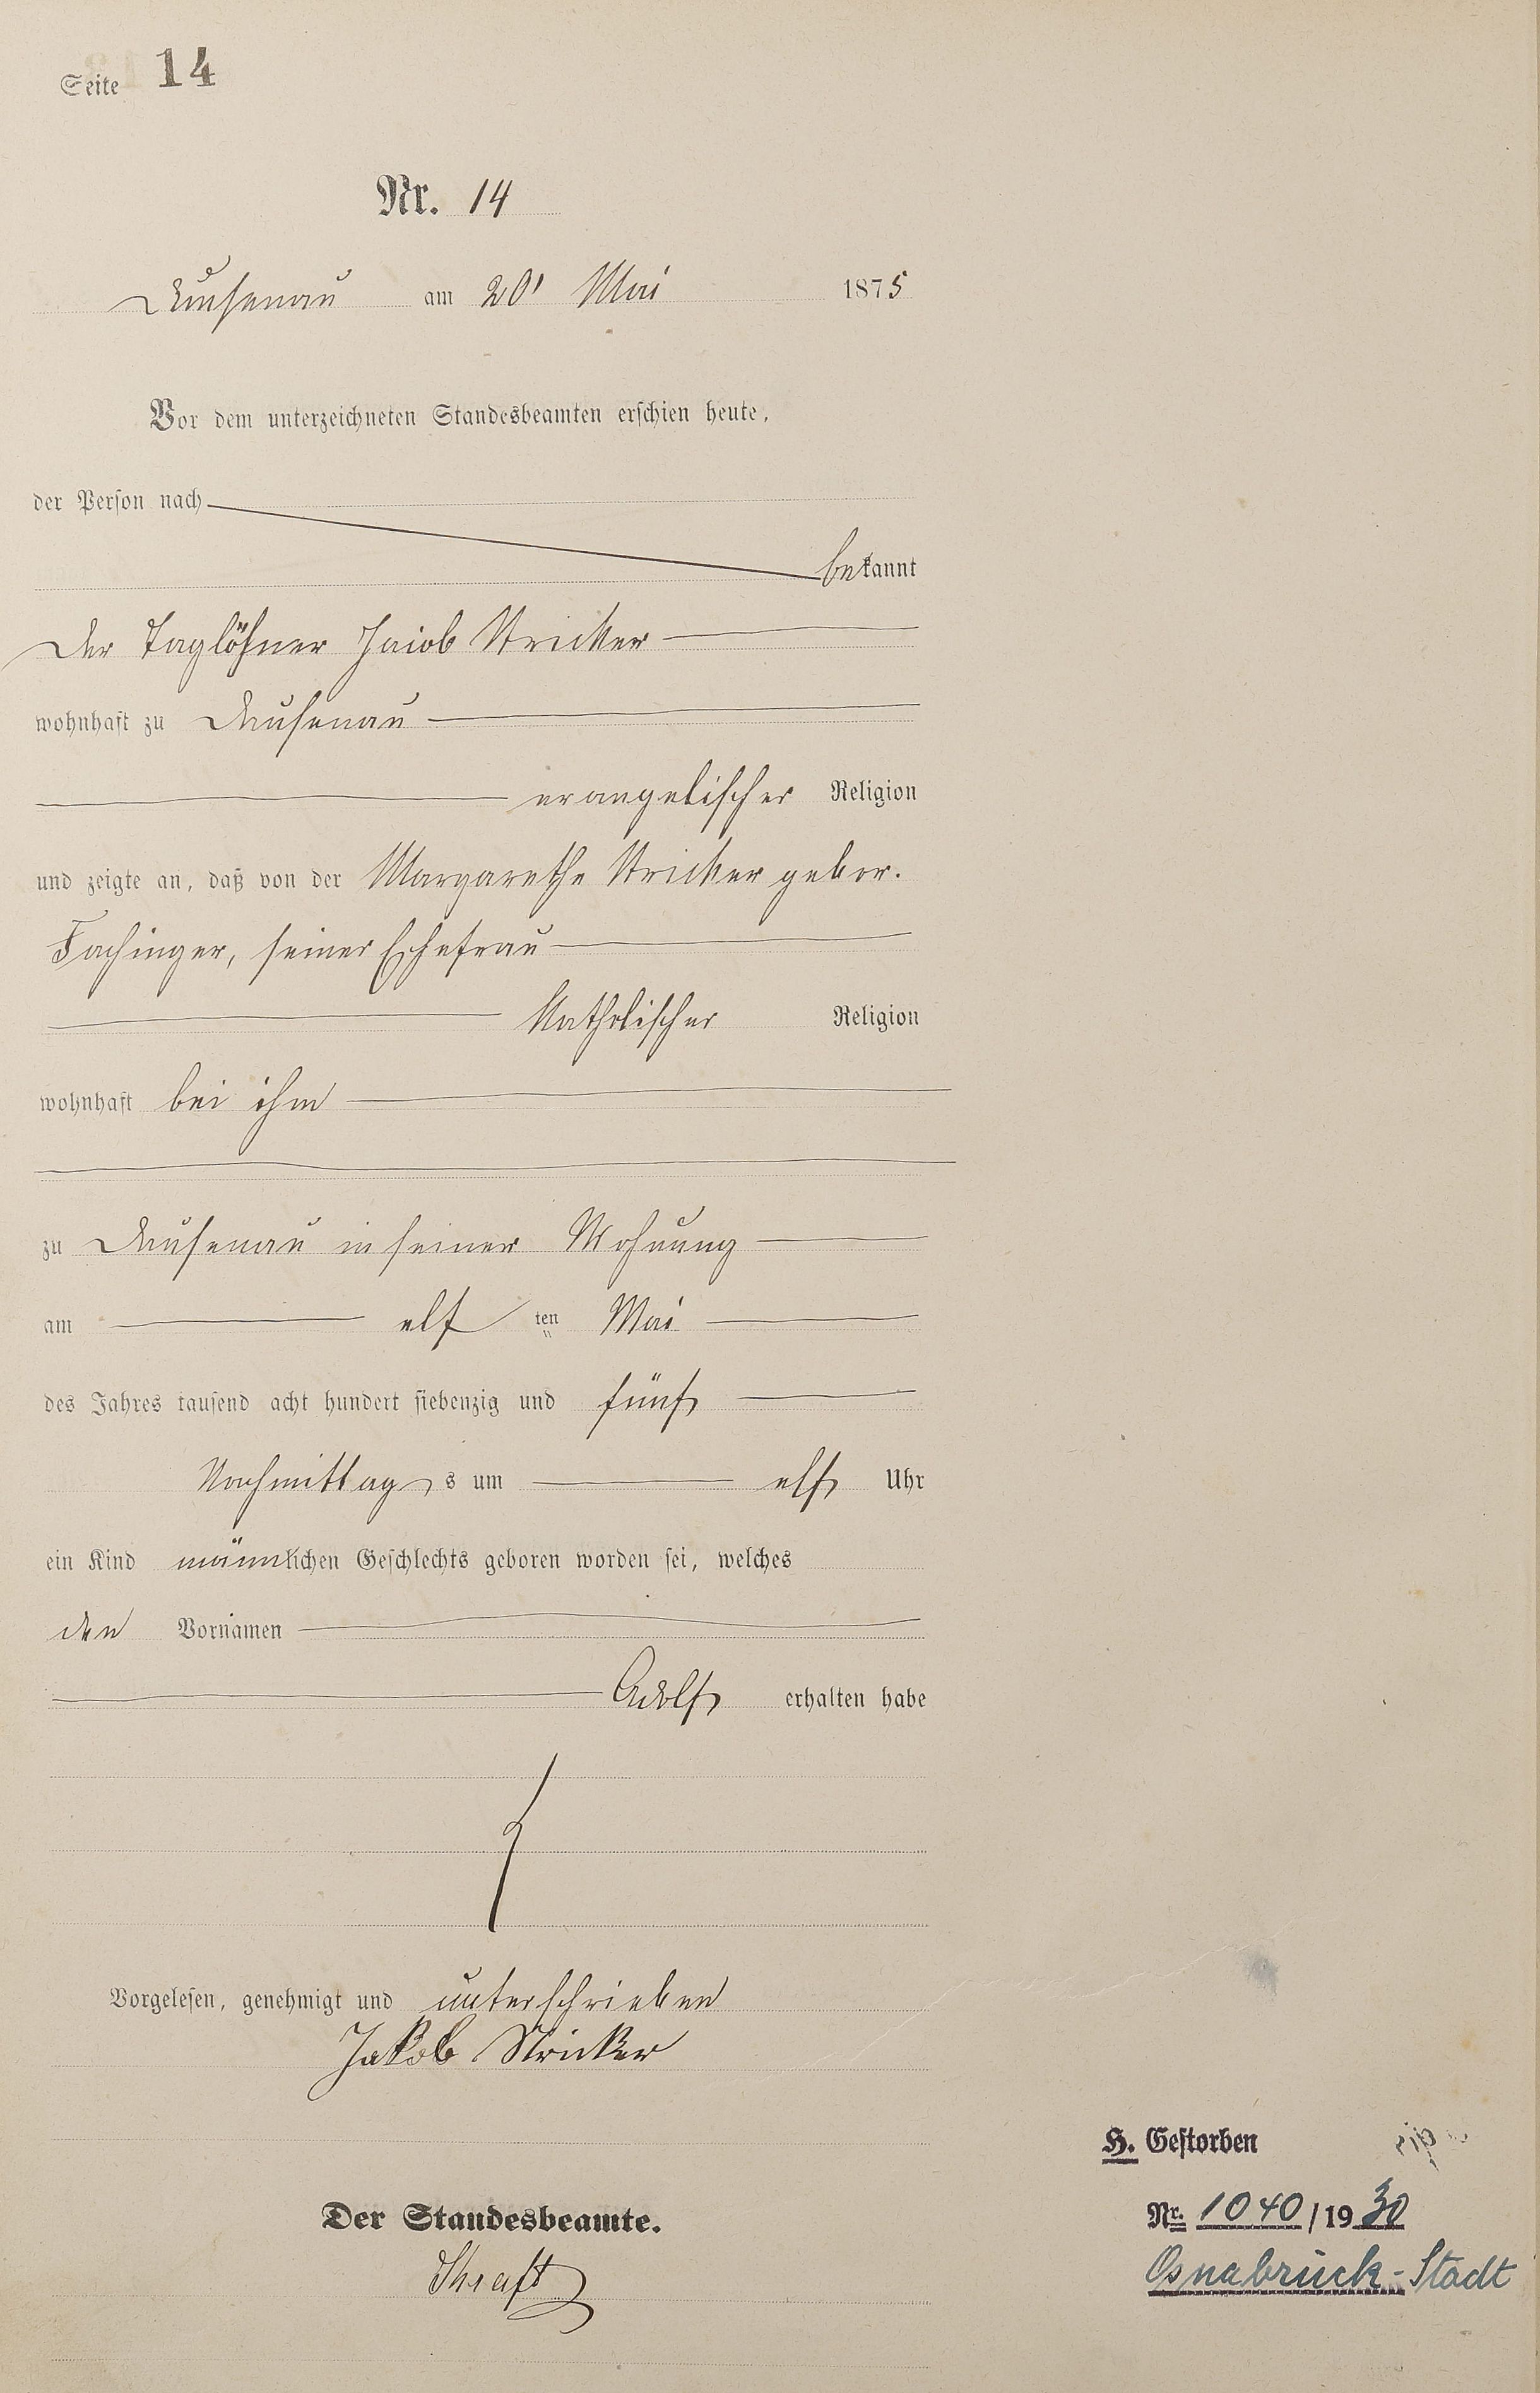 Seite 14
Nr. 14
Dausenau am 20' Mai 1875
Vor dem unterzeichneten Standesbeamten erschien heute,
der Person nach
bekannt
der Taglöhner Jacob Stricker
wohnhaft zu Dausenau
evangelischer Religion
und zeigte an, daß von der Margarethe Stricker gebor.
Fachinger, seiner Ehefrau
katholischer Religion
wohnhaft bei ihm
zu Dausenau in seiner Wohnung
am elf ten Mai
des Jahres tausend acht hundert siebenzig und fünf
Nachmittag s um elf Uhr
ein Kind männlichen Geschlechts geboren worden sei, welches
den Vornamen
Adolf erhalten habe
Vorgelesen, genehmigt und unterschrieben
Jakob Stricker
Der Standesbeamte.
H. Gestorben
Nr. 1040/1930
Osnabrück-Stadt